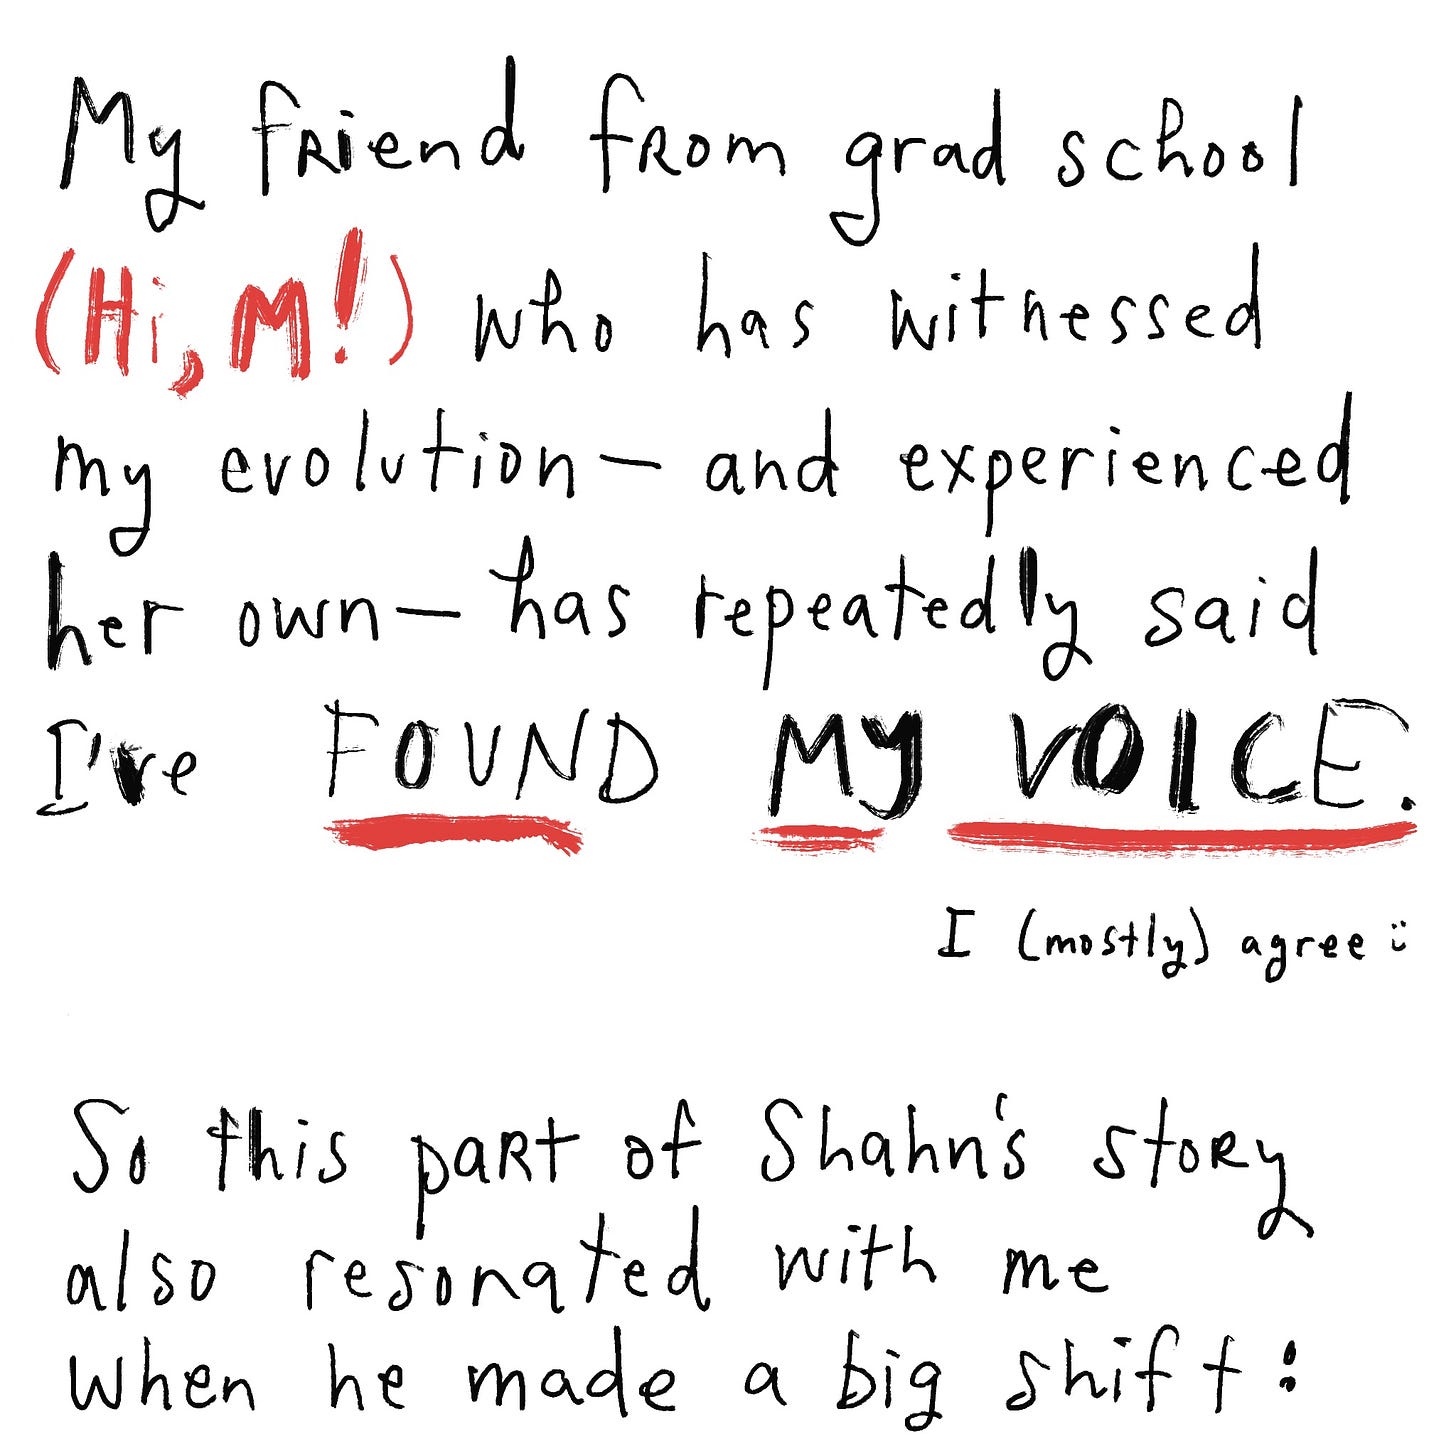 My friend from grad school
(Hi, M!) who has witnessed
my evolution— and experienced
her own— has repeatedly said
I've FOUND MY VOICE.
I (mostly) agree :)
So this part of Shahn's story
also resonated with me
when he made a big shift: